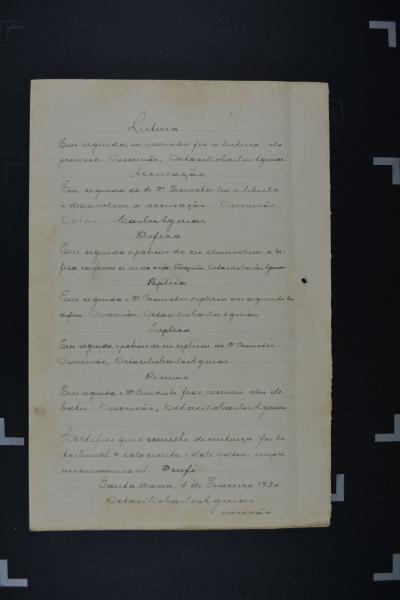 Leitura
Em seguida, o escrivão fez a leitura do
processo. O escrivão, Octacilio Carlos Aguiar
Accusação
Em seguida, o Dr. Promotor leu o libello
e desenvolveu a accusação. O escrivão,
Octacilio Carlos Aguiar
Defesa
Em seguida o patrono do réo desenvolveu a de-
fesa, O escrivão, Octacilio Carlos Aguiar
Replica
Em seguida o Dr. Promotor replicou aos argumentos da
defesa. O escrivão Octacilio Carlos Aguiar
Treplica
Em seguida, o patrono do réo replicou ao Dr. Promotor.
O escrivão, Octacilio Carlos Aguiar
Resumo
Em seguida o Dr. Presidente fez o resumo dos de-
bates. O escrivão, Octacilio Carlos Aguiar
Certifico que o conselho de sentença foi do
tribunal a sala secreta e
incommunicavel. Dou fé
Santa Maria, 4 de Fevereiro 1930
Octacilio Carlos Aguiar
escrivão